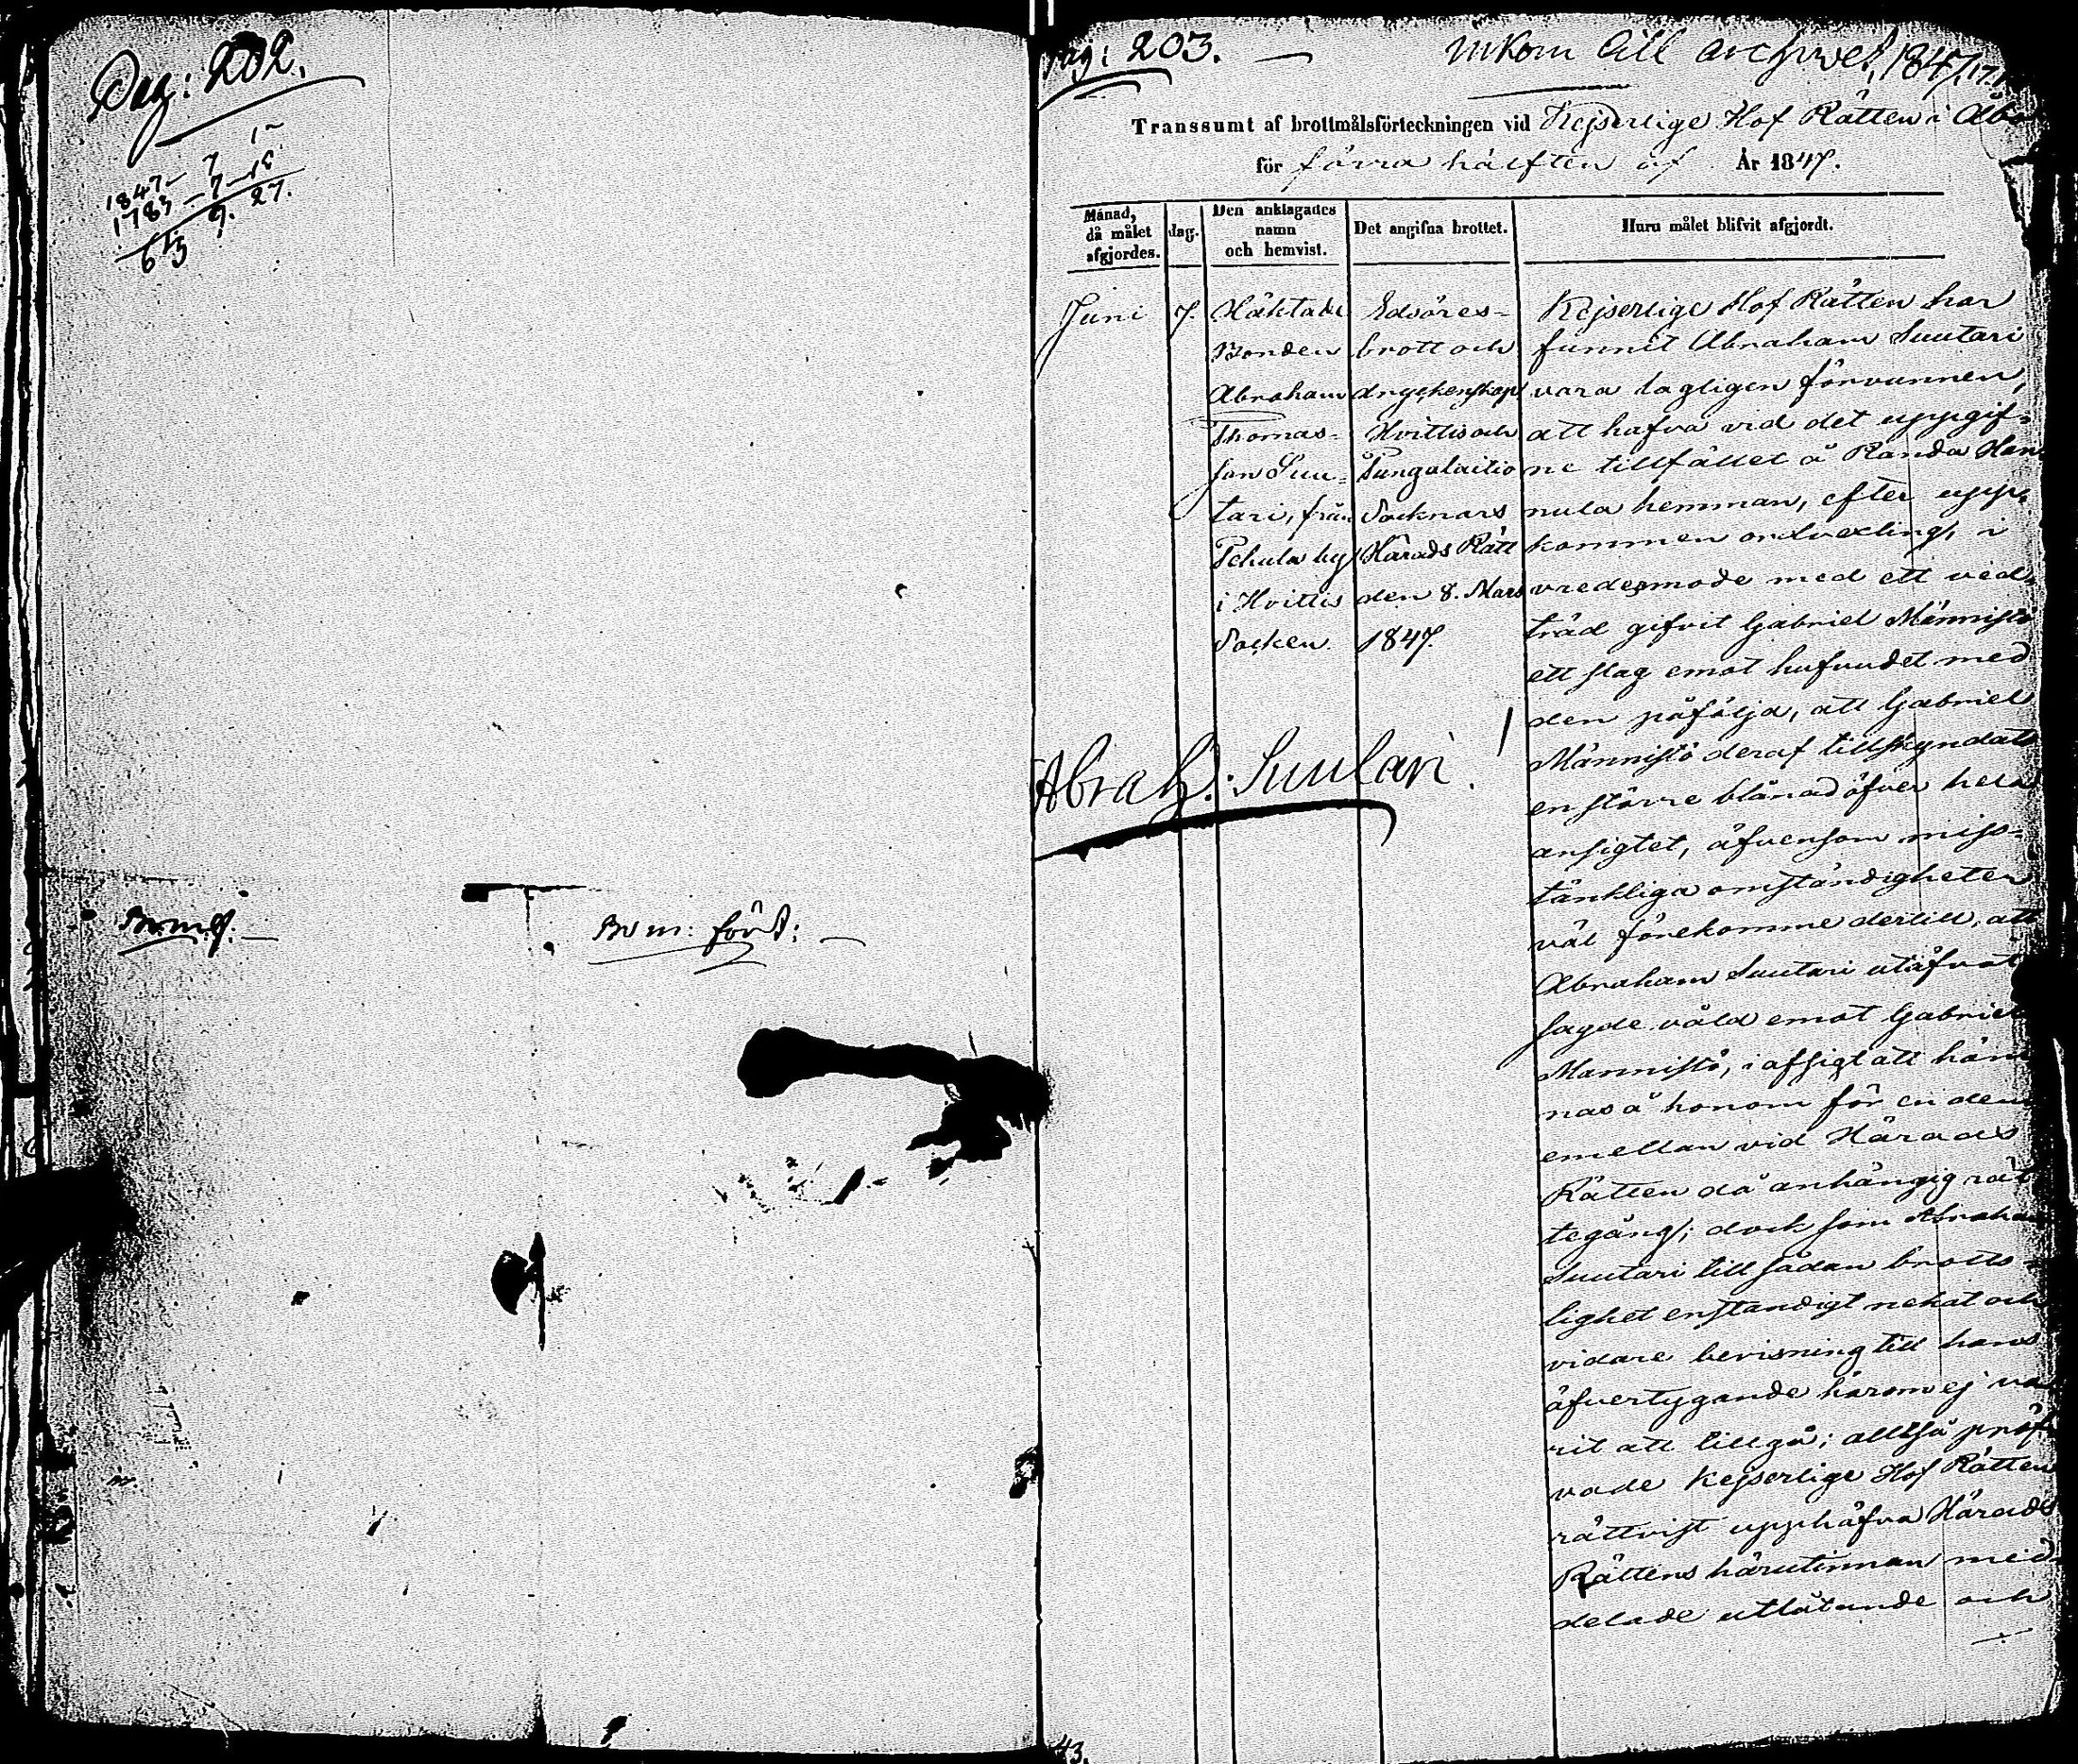 Pag: 202.
1847 – 7 1
1783 – 7 – 15
63 9. 27.
Bv m: förd:
Pag: 203. —
Inkom till archivet, 1847
Transsumt af brottmålsförteckningen vid Kejserlige Hof Rätten i Åbo
för förra hälften af År 1847.
Månad, då målet afgjordes.
dag.
Den anklagades namn och hemvist.
Det angifna brottet.
Huru målet blifvit afgjordt.
Juni
7.
Häktade
Bonden
Abraham
Thomas-
son Suu-
tari, från
Pehula by
i Hvittis
Socken.
Edsöres-
brott och
dryckenskap
Hvittis och
Pungalaitio
Socknars
Härads Rätt
den 8. Mars
1847.
Abrah: Suutari.
Kejserlige Hof Rätten har
funnit Abraham Suutari
vara lagligen förvunnen,
att hafva vid det uppgif-
ne tillfället å Randa Han
nula hemman, efter upp-
kommen ordvexling, i
vredesmode med ett ved-
träd gifvit Gabriel Männistö
ett slag emot hufvudet med
den påfölja, att Gabriel
Männistö deraf tillskyndats
en större blånad öfver hela
ansigtet, äfvensom miss-
tänkliga omständigheter
väl förekomme dertill, att
Abraham Suutari utöfvat
sagde våld emot Gabriel
Mannistö, i afsigt att häm
nas å honom för en dem
emellan vid Härads
Rätten då anhängig rät
tegång; dock som Abraham
Suutari till sådan brotts-
lighet enständigt nekat och
vidare bevisning till hans
öfvertygande härom ej va
rit att tillgå; alltså pröf-
vade Kejserlige Hof Rätten
rättvist upphäfva Härads
Rättens härutinnan med-
delade utlåtande och
43.